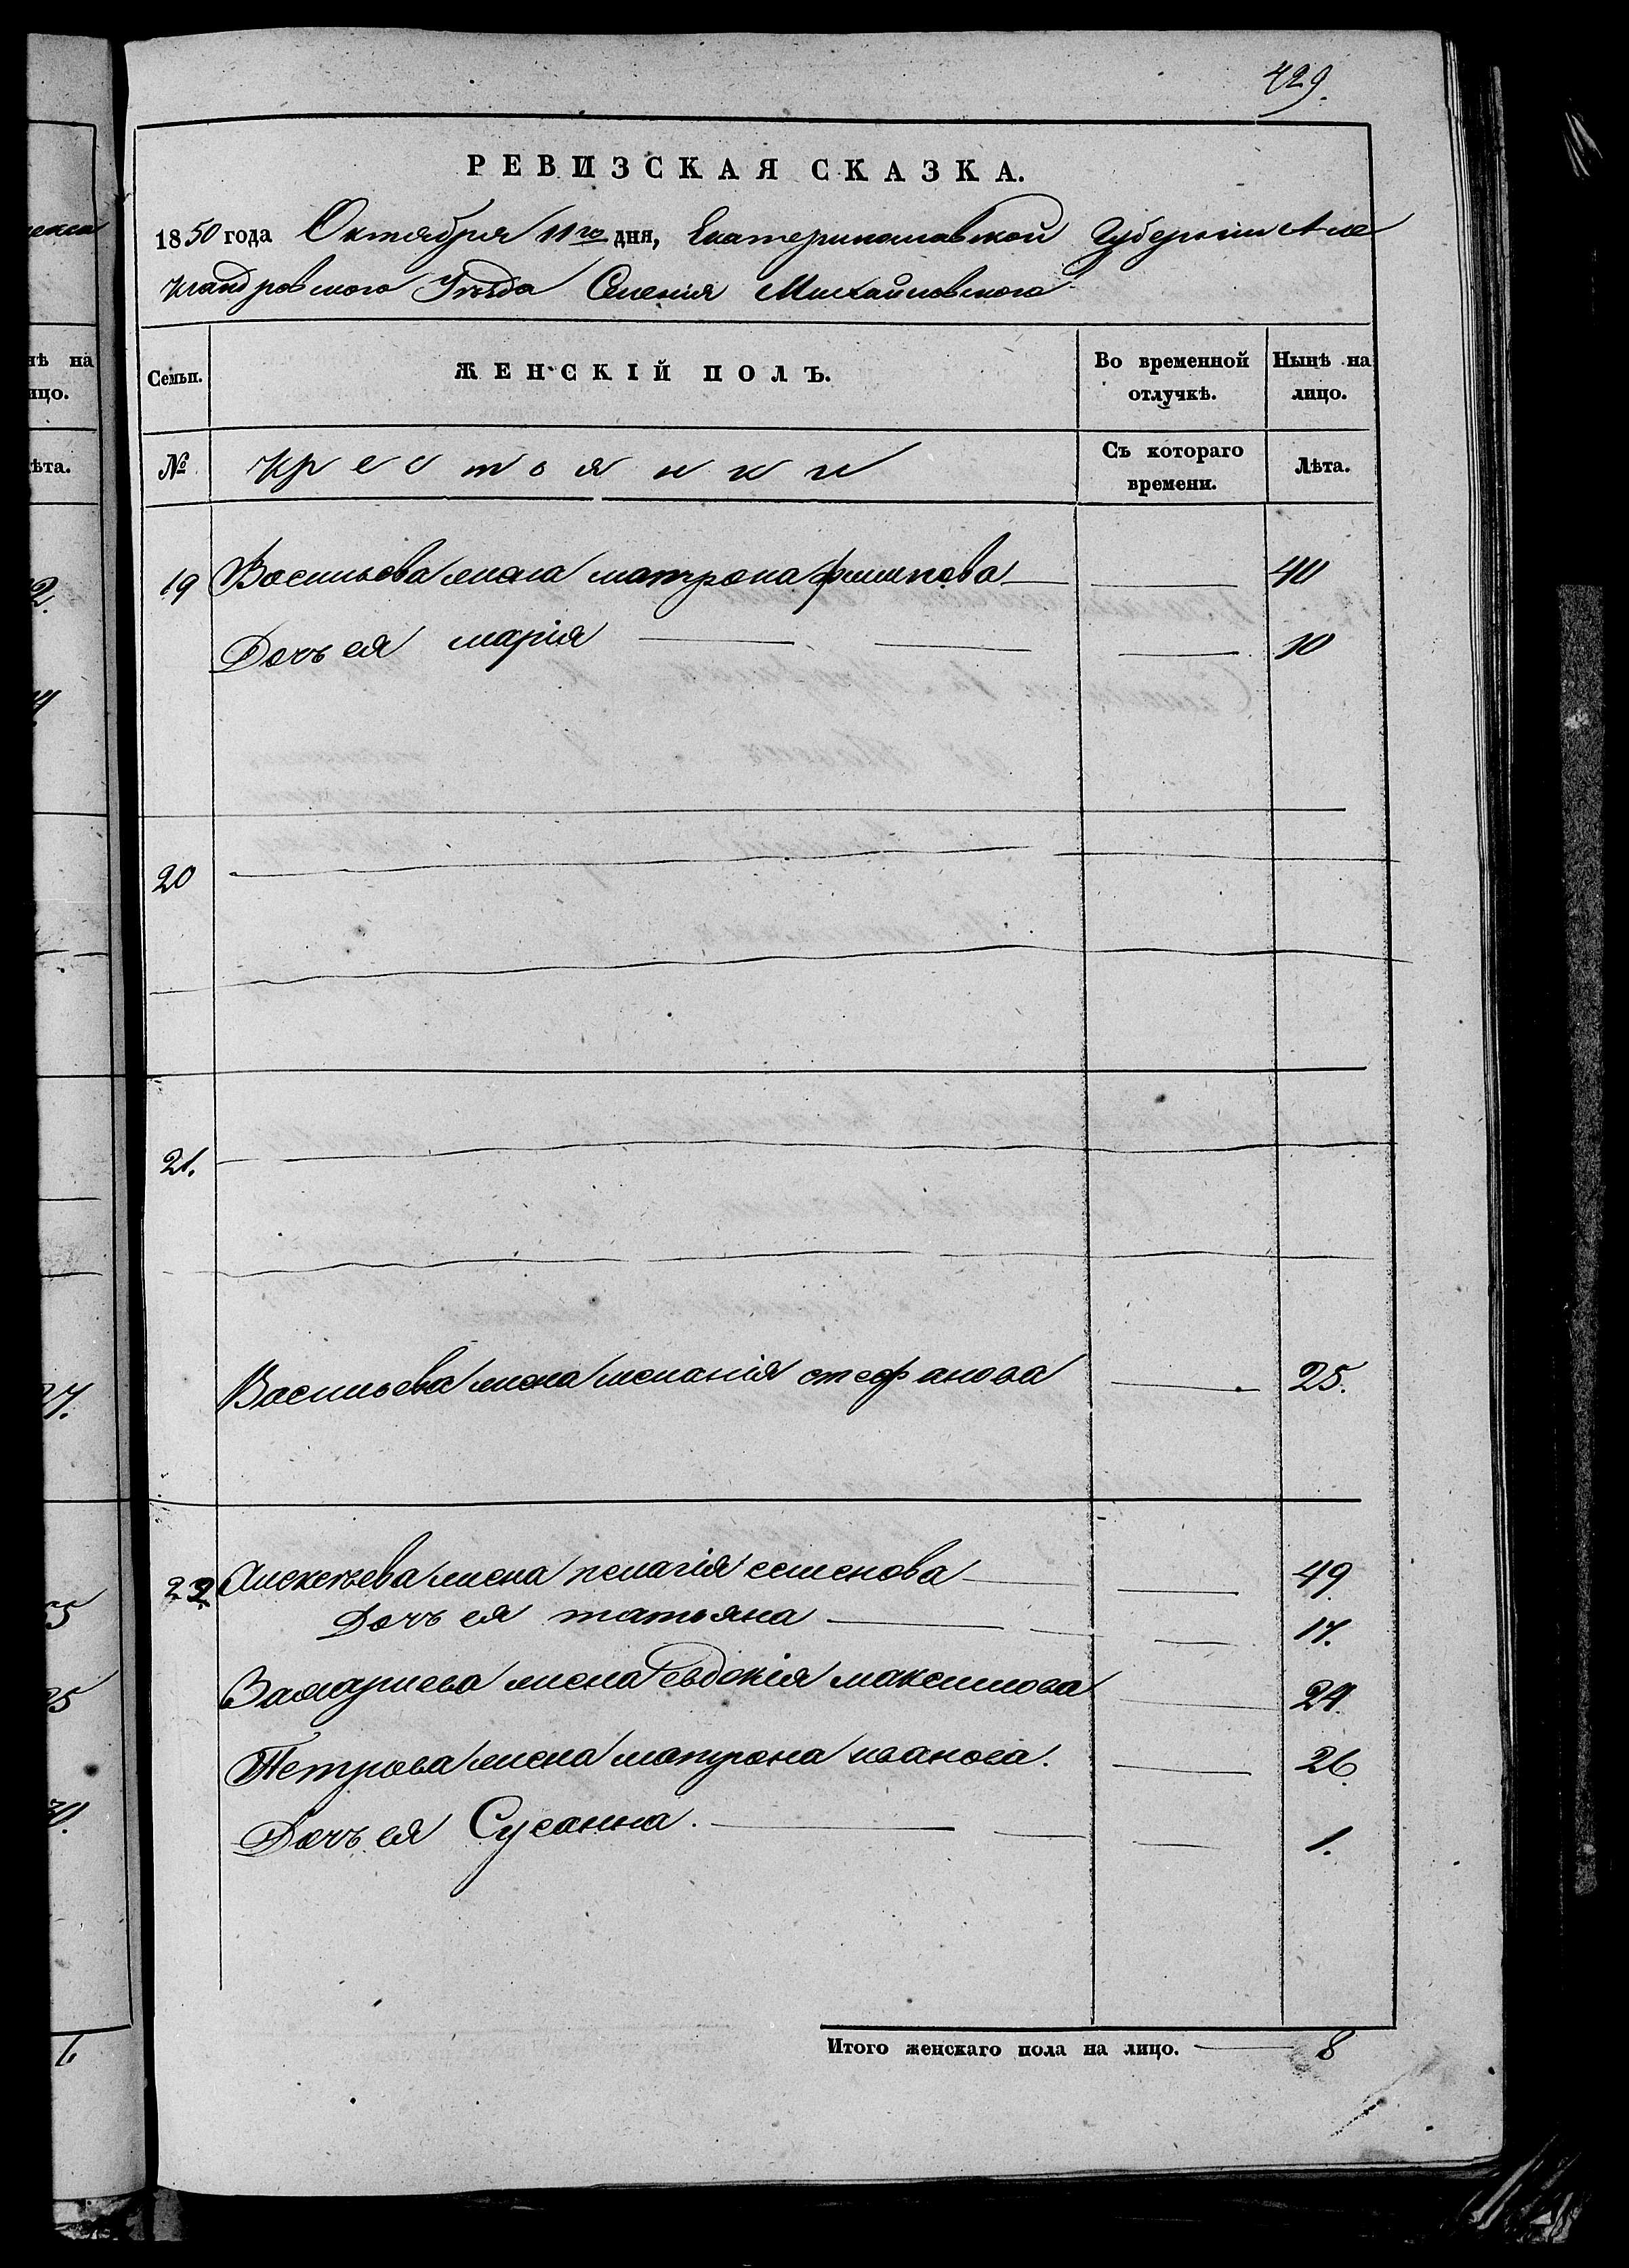 429.
РЕВИЗСКАЯ СКАЗКА.
1850 года Октября 11го дня, Екатеринославской Губерніи Але
ксандровского Уѣзда Селенія Михайловского
Семьи. ЖЕНСКІЙ ПОЛЪ. Во временной отлучкѣ. Нынѣ на лицо.
№ Крестоянки Съ котораго времени. Лѣта.
19 Васильева жена матрона филипова 40
Дочь ея марія 10
20
21.
Васильева жена меланія стефанова 25.
22 Алексеева жена пелагія семенова 49
Дочь ея татьяна 17.
Захариева жена евдокія максимова 24
Петрова жена матрона иванова. 26.
Дочь ея Сусанна. 1.
Итого женскаго пола на лицо. 8